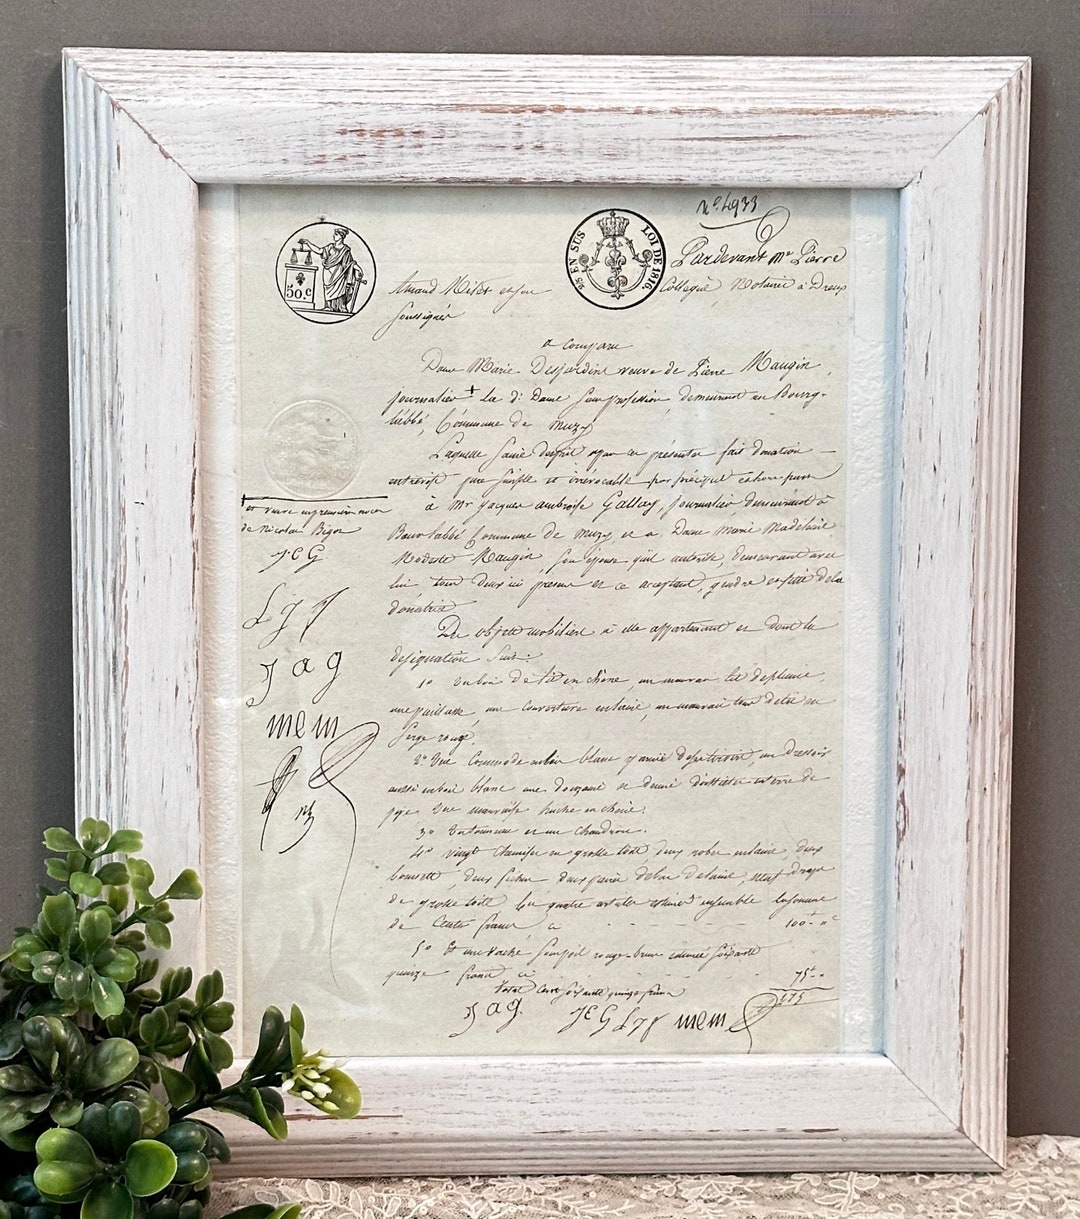 nº 4933
50.C
5/5 EN SUS LOI DE 1816
Pardevant Me Pierre
Amand collègue, Notaire à Dreux
Soussignés
a comparu
Dame Marie Desjardins veuve de Pierre Maugin,
journalier + la de Dame sans profession, demeurant au Bourg-
l'abbé, Commune de Muzy
Laquelle fait donation
entrevifs pure simple et irrévocable par préciput et hors part
à Mr Jacques ambroise Gallay, journalier, demeurant à
Bourlabbé Commune de Muzy, et a Dame Marie Madelaine
Modeste Maugin, son épouse qu'il autorise, demeurant avec
lui tous deux ici present et ce aceptant,
donatrice
De objets mobiliers à elle appartenant et dont la
designation Suit:
1º un bois de lit en chêne, un mauvais lit de plume,
une paillasse, une couverture en laine, un mauvais tour de lit en
Serge rouge.
2º Une Commode en bois blanc un Dressoir
aussi en bois blanc une douzaine et demie d'assiettes en terre de
pipe Une mauvaise huche en chêne.
3º un tonneau et un chaudron.
4º vingt chemises en grosse toile, deux robes en laine, deux
de laine, neuf draps
de grosse toile Les quatre articles estimés ensemble la somme
de Cents francs 100
5º Et une vache sous poil rouge-brun estimée soixante
quinze francs 75
Total Cent soixante quinze francs 175
J a g. J C G L J F mem
+ et veuve en premières noces
de Nicolas Bigot
J C G
L J F
J a g
mem